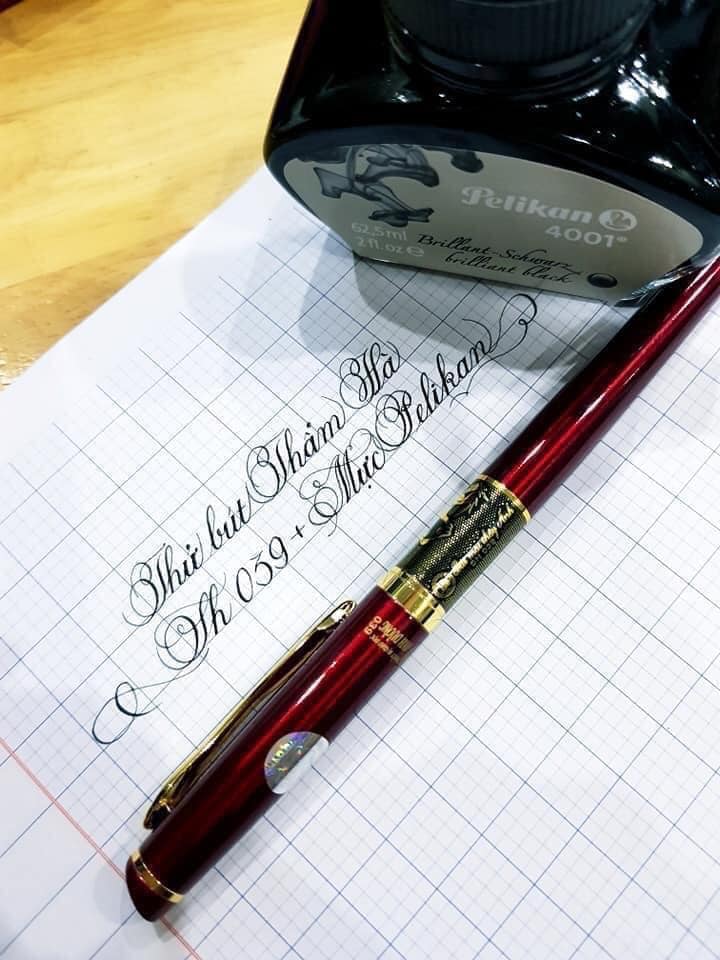 Pelikan
4001®
62,5ml
2 fl.oz e
Brillant-Schwarz
brilliant black
Thử bút Thảm Hà
Th 039 + Mực Pelikan
039